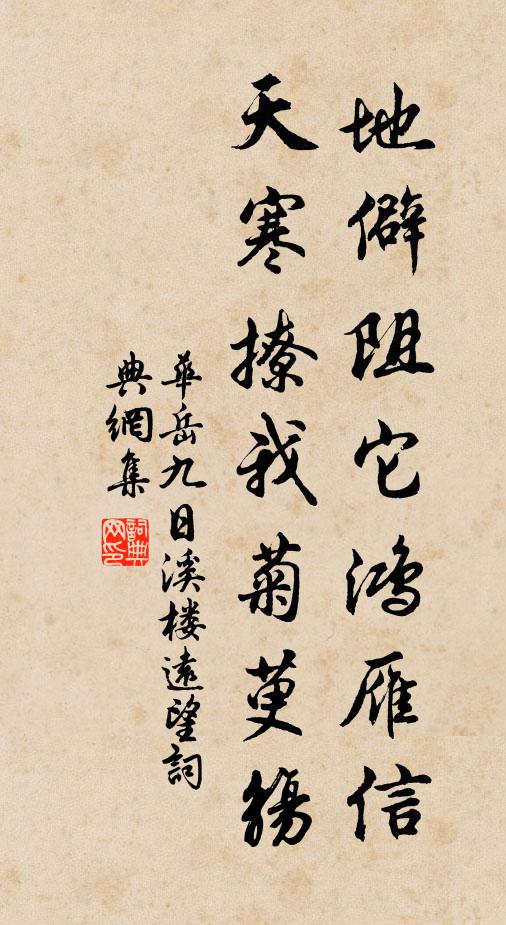 地僻阻它鸿雁信
天寒撩我菊萸觞
華岳九日溪楼遠望詞
典網集
詞典網印